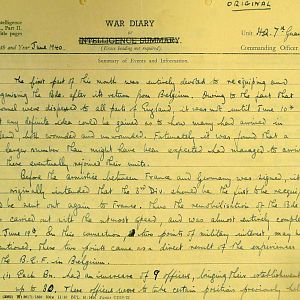 ORIGINAL
WAR DIARY
or
INTELLIGENCE SUMMARY.
(Erase heading not required).
Intelligence
Part II.
title pages
Unit H.Q. 7th Guards
and Year June 1940.
Commanding Officer
Summary of Events and Information.
The first part of the month was entirely devoted to re-equiping and
the Bde. after its return from Belgium. Owing to the fact that
were dispersed to all parts of England, it was not until June 10th
any definite idea could be gained as to how many had arrived in
left wounded and unwounded. Fortunately it was found that a
larger number than might have been expected had managed to arrive
these eventually rejoined their units.
Before the armistice between France and Germany was signed, it
originally intended that the 3rd Div. should be the first to be reequip
be sent out again to France. Thus the remobilisation of the Bde
carried out with the utmost speed, and was almost entirely comple
June 14th. In this connection two points of military interest may be
mentioned. These two points came as a direct result of the experiences
the B.E.F. in Belgium.
(i) Each Bn. had an increase of 9 officers, bringing their establishment
up to 30. These officers were to take certain positions previously held